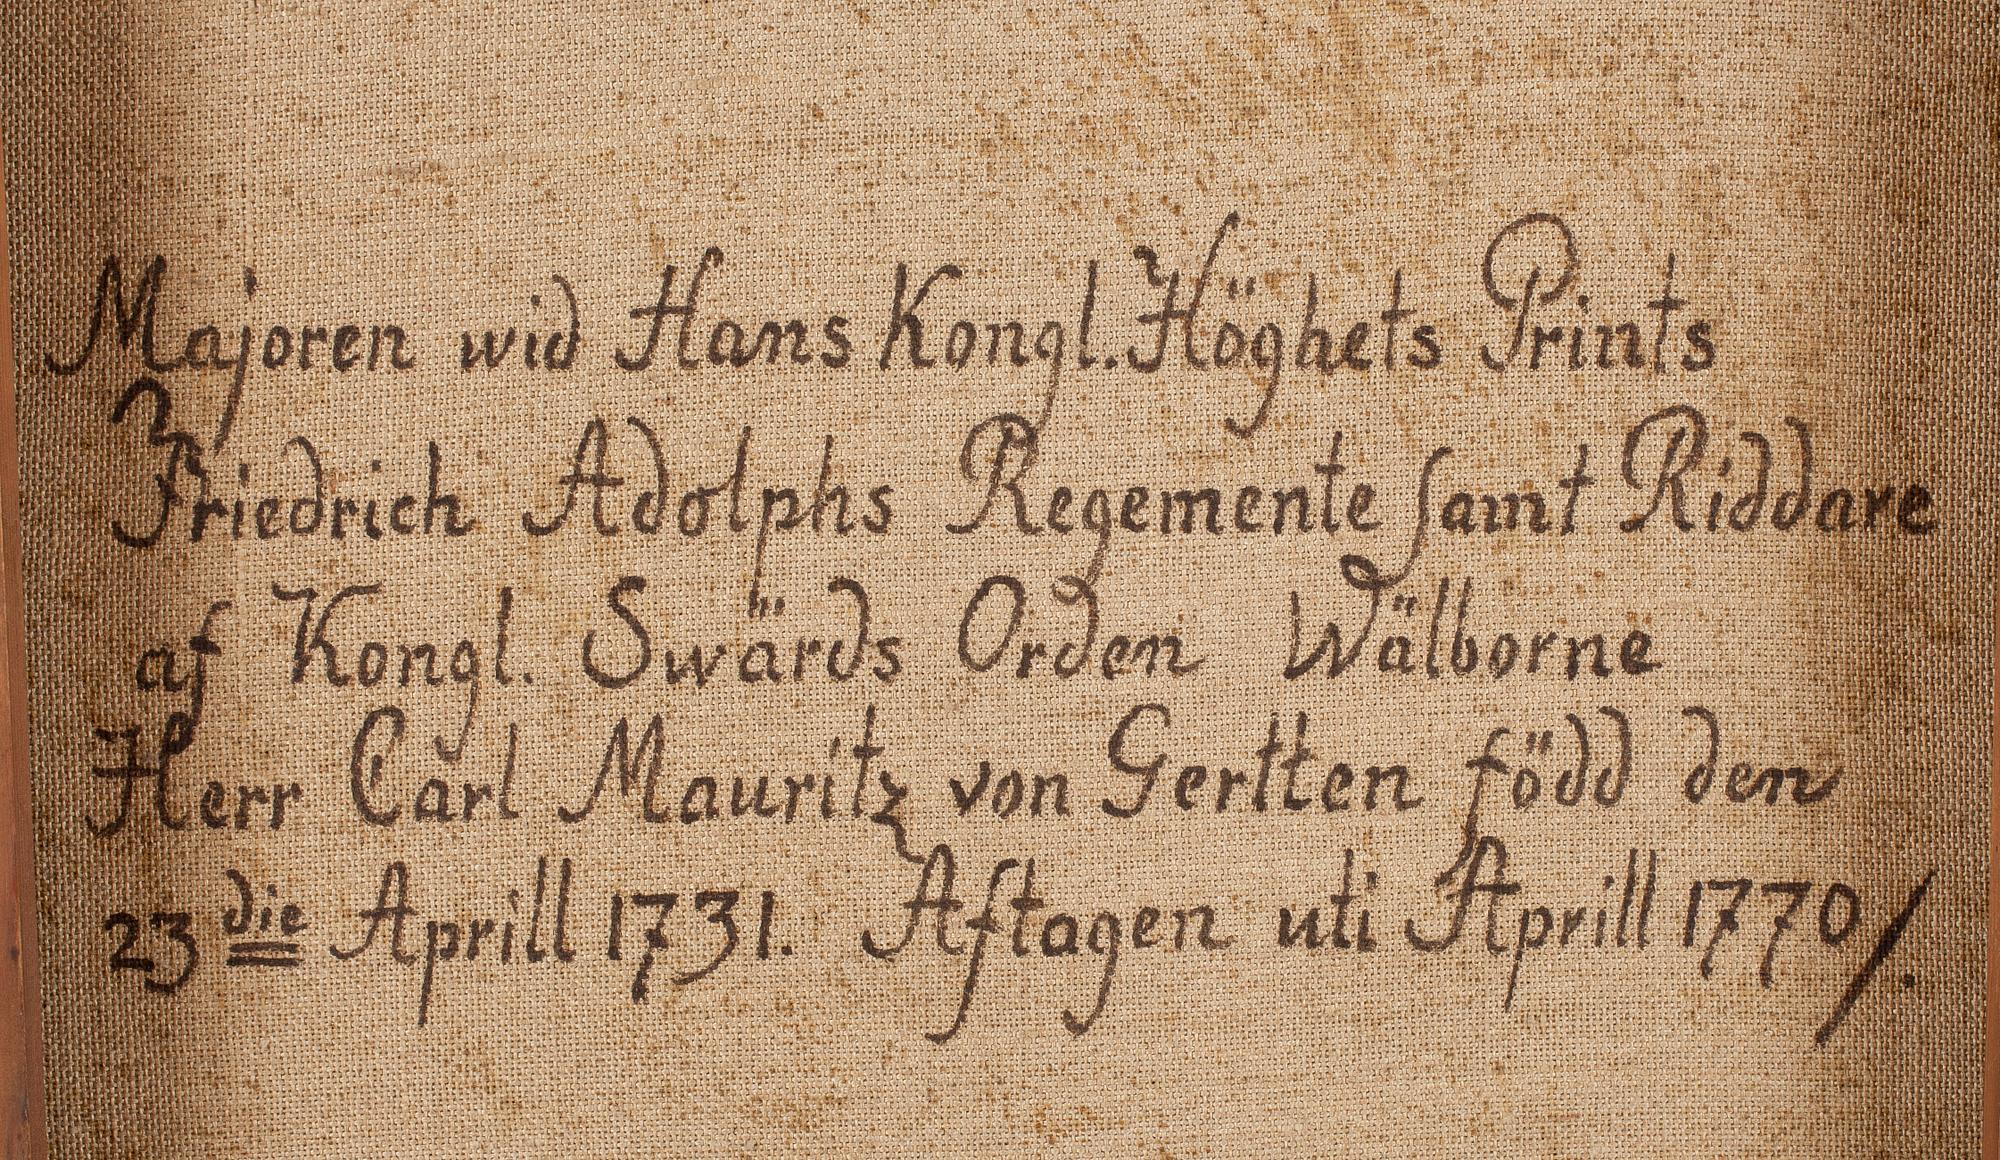 Majoren wid Hans Kongl. Höghets Prints
Friedrich Adolphs Regemente samt Riddare
af Kongl. Swärds Orden Wälborne
Herr Carl Mauritz von Gertten född den
23 die Aprill 1731. Aftagen uti Aprill 1770/.